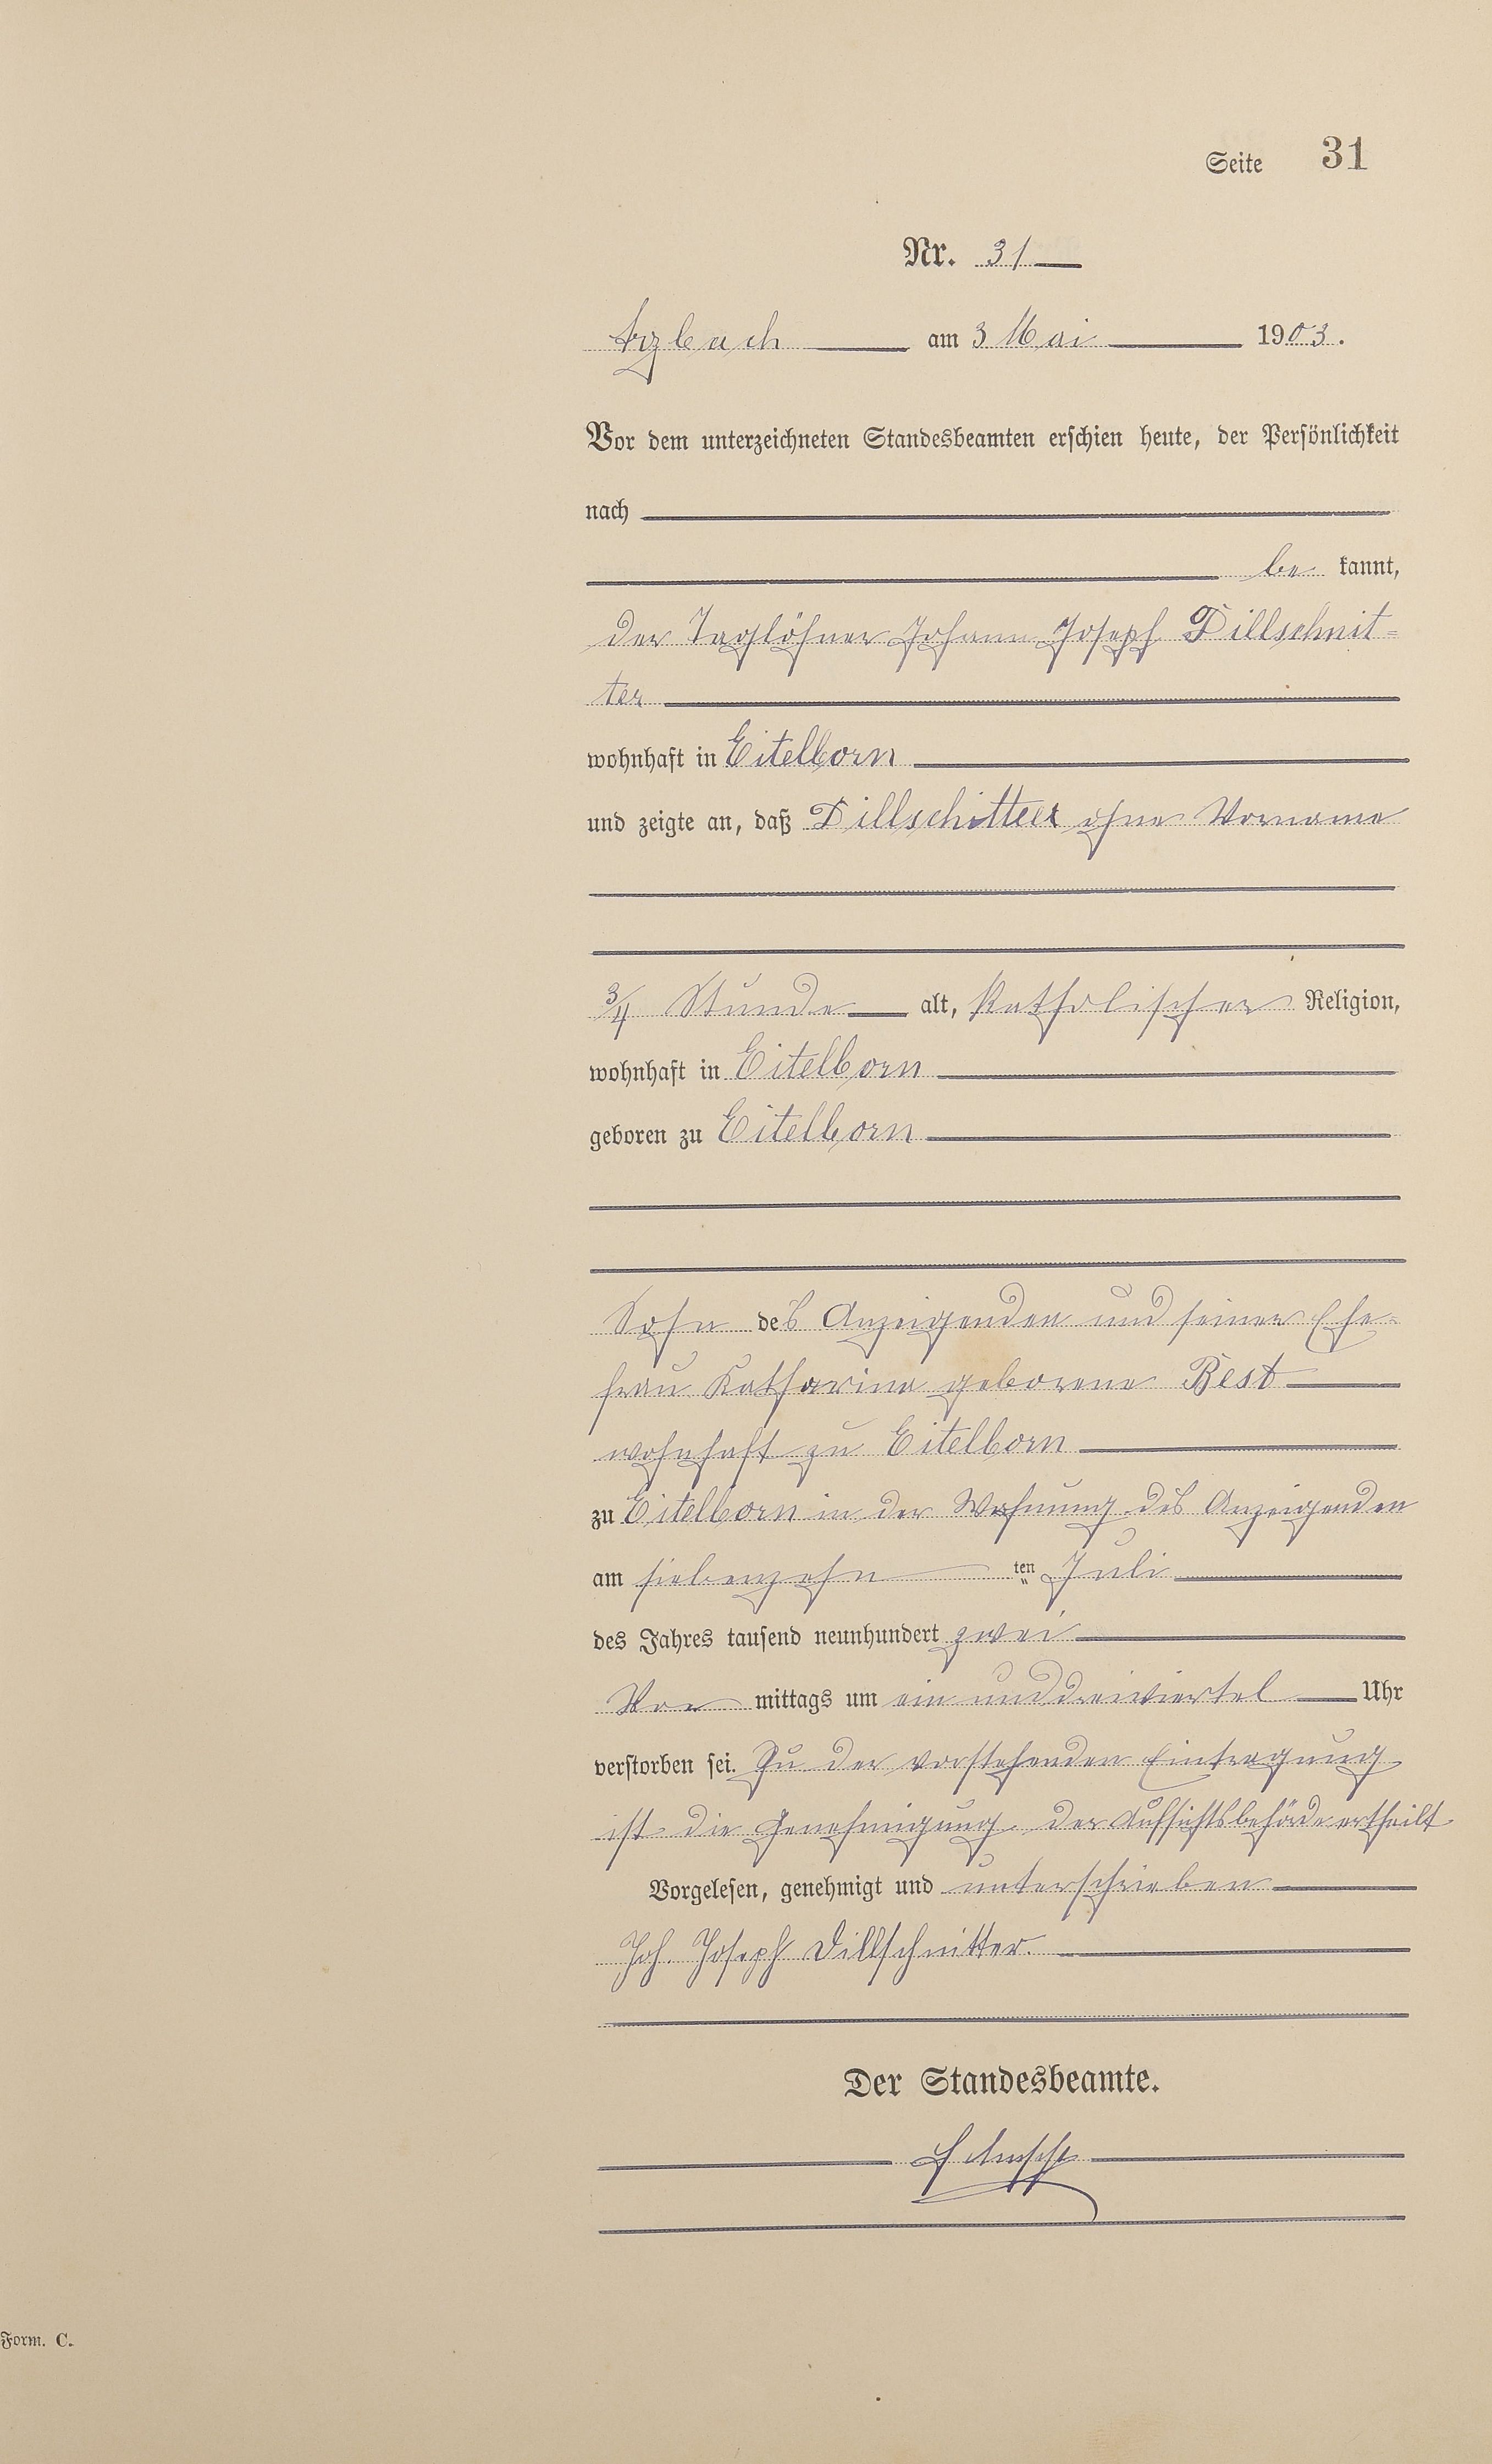 Seite 31
Nr. 31
Arzbach am 3 Mai 1903.
Vor dem unterzeichneten Standesbeamten erschien heute, der Persönlichkeit
nach
be kannt,
der Taglöhner Johann Joseph Dillschnit=
ter
wohnhaft in Eitelborn
und zeigte an, daß Dillschitter ohne Vorname
3/4 Stunde alt, katholischer Religion,
wohnhaft in Eitelborn
geboren zu Eitelborn
Sohn des Anzeigenden und seiner Ehe=
frau Katharina geborene Best
wohnhaft zu Eitelborn
zu Eitelborn in der Wohnung des Anzeigenden
am siebenzehn ten Juli
des Jahres tausend neunhundert zwei
Vor mittags um ein und dreiviertel Uhr
verstorben sei. Zu der vorstehenden Eintragung
ist die Genehmigung der Aufsichtsbehörde ertheilt
Vorgelesen, genehmigt und unterschrieben
Joh. Joseph Dillschnitter.
Der Standesbeamte.
Form. C.